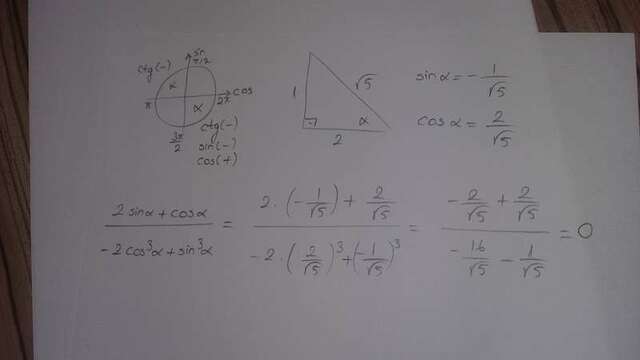 sin
π/2
ctg(-)
α
cos
π
2π
α
3π/2
ctg(-)
sin(-)
cos(+)
1
√5
α
2
sinα = - 1/√5
cosα = 2/√5
(2 sinα + cosα)/(-2 cos³α + sin³α) = (2 · (-1/√5) + 2/√5)/(-2 · (2/√5)³ + (-1/√5)³) = (-2/√5 + 2/√5)/(-16/√5 - 1/√5) = 0